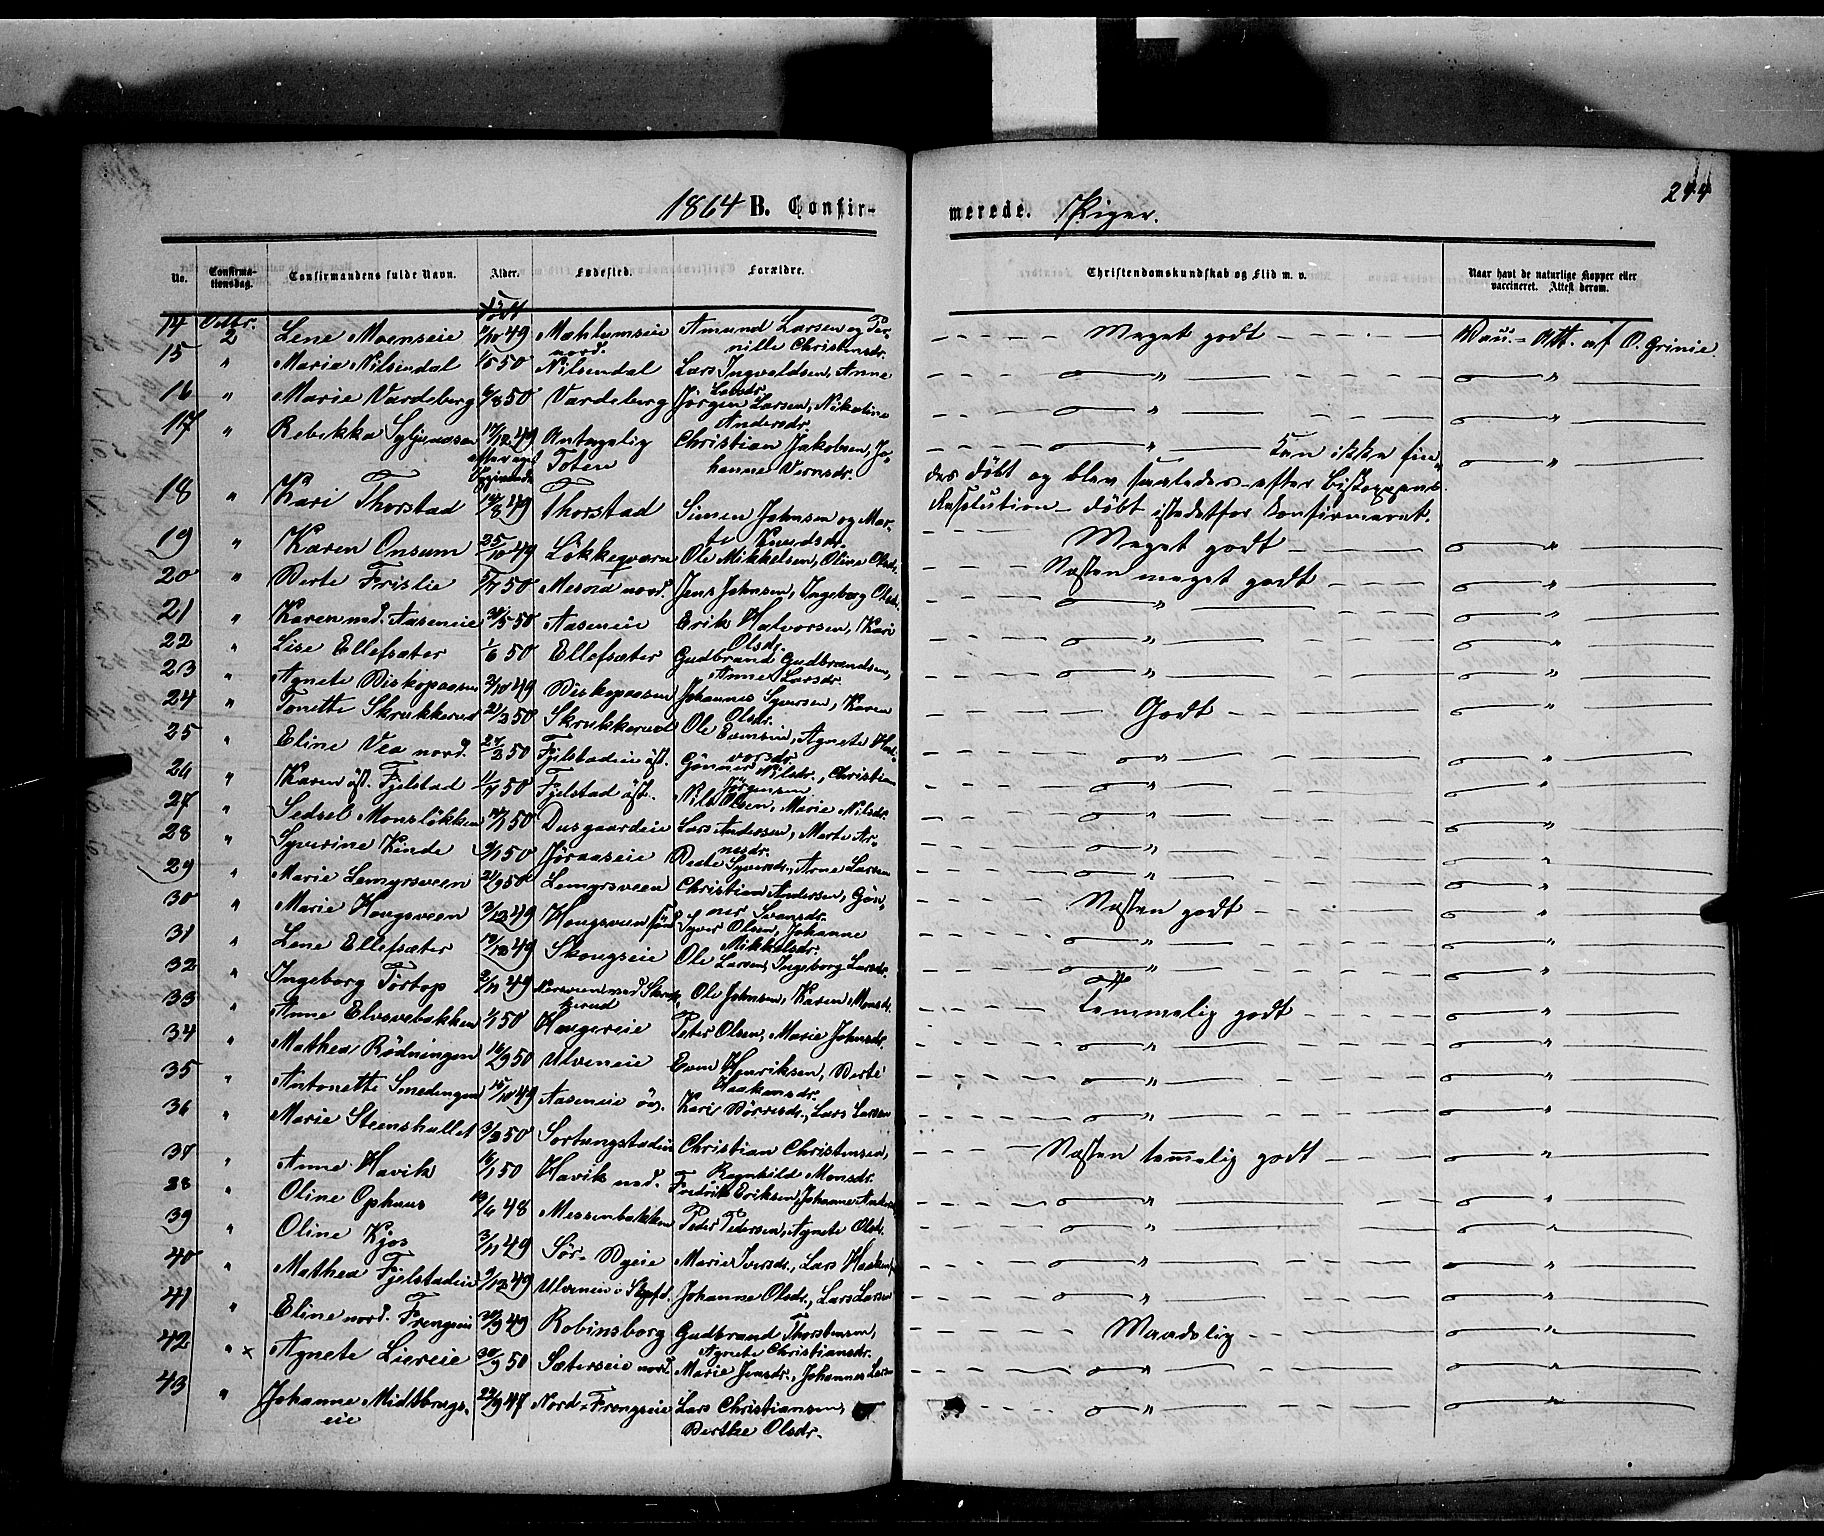 244
1864 B. Confirmerede. Piger.
No. Confirmationsdag. Confirmandens fulde Navn. Alder. Fødested. Forældre. Christendomskundskab og Flid m. v. Naar havt de naturlige Kopper eller vaccineret. Attest derom.
14 Octbr. 2 Lene Moenseie 49 Mæhlumseie nord. Amund Larsen og Pernille Christensdr. Meget godt Vacc. Att. af O. Grinie
15 " Maria Nilsendal 50 Nilsendal Lars Ingvaldsen, Anne Larsdr. "
16 " Marie Vardeberg 50 Vardeberg Jørgen Larsen, Nikoline Andersdr. "
17 " Rebekka 49 Antagelig Toten Christian Jakobsen, Johanne Iversdr. " Kan ikke findes døbt og blev saaledes efter Biskoppens Resolution døbt istedetfor konfirmeret.
18 " Kari Thorstad 49 Thorstad Simen Johnsen og Marte Knudsdr. Meget godt
19 " Karen Onsum 25/10 49 Løkkeqværn Ole Mikkelsen, Oline Olsdr. Næsten meget godt
20 " Berte Frislie 50 Mesna nord. Jens Johnsen, Ingeborg Olsdr. "
21 " Karen ned. Aaseneie 50 Aaseneie Erik Halvorsen, Kari Olsdr. "
22 " Lise Ellefsæter 1/6 50 Ellefsæter Gudbrand Gudbrandsen, Anne Larsdr. "
23 " Agnete Biskopaasen 49 Biskopaasen Johannes Syversen, Karen Olsdr. Godt
24 " Tonette Skrukkerud 21/3 50 Skrukkerud Ole Evensen, Agnete Halvorsdr. "
25 " Eline Vea nord. 50 Fjelstadeie øst. Gønner Nilsdr., Christian Jørgensen "
26 " Karen øst. Fjelstad 50 Fjelstad øst. Nils Olsen, Marie Nilsdr. "
27 " Sedsel Monsløkken 50 Dusgaardeie Lars Andersen, Marte Arnesdr. "
28 " Syverine Kinde 50 Jøraaseie Beate Syversdr., Arne Larsen "
29 " Marie Lemyrsveen 50 Lemyrsveen Christian Andersen, Gønner Svensdr. Næsten godt
30 " Marie Haugsveen 3/12 49 Haugsveen Syver Olsen, Johanne Mikkelsdr. "
31 " Lene Ellefsæter 49 Skougseie Ole Larsen, Ingeborg Larsdr. "
32 " Ingeborg Tortop 49 Ole Johnsen, Karen Monsdr. Temmelig godt
33 " Anne Elvsvebakken 50 Haugereie Peter Olsen, Marie Johnsdr. "
34 " Mathea Rødningen 50 Ulveneie Even Henriksen, Berte Haakensdr. "
35 " Antonette Smedingen 49 Aaseneie øv. Kari Børresdr., Lars Larsen "
36 " Marie Steenshallet 50 Sortungstadeie Christian Christensen, Ragnhild Monsdr. Næsten temmelig godt
37 " Anne Havik 50 Havik ned. Fredrik Eriksen, Johanne "
38 " Oline Ophuus 48 Messenbakken Peder Pedersen, Agnete Olsdr. "
39 " Oline Kjos 49 Sør-Byeie Marie Iversdr., Lars "
40 " Mathea Fjelstadeie 49 Ulveneie Johanne Olsdr., Lars Larsen "
41 " Eline nord. Frengseie 49 Robinsborg Gudbrand Thorstensen, Agnete Christiansdr. Maadelig
42 " × Agnete Liereie 50 Sæterseie nord. Marie Jensdr., Johannes Larsen "
43 " Johanne Midtbrugseie 47 Nord-Frengseie Lars Christiansen, Berthe Olsdr. "